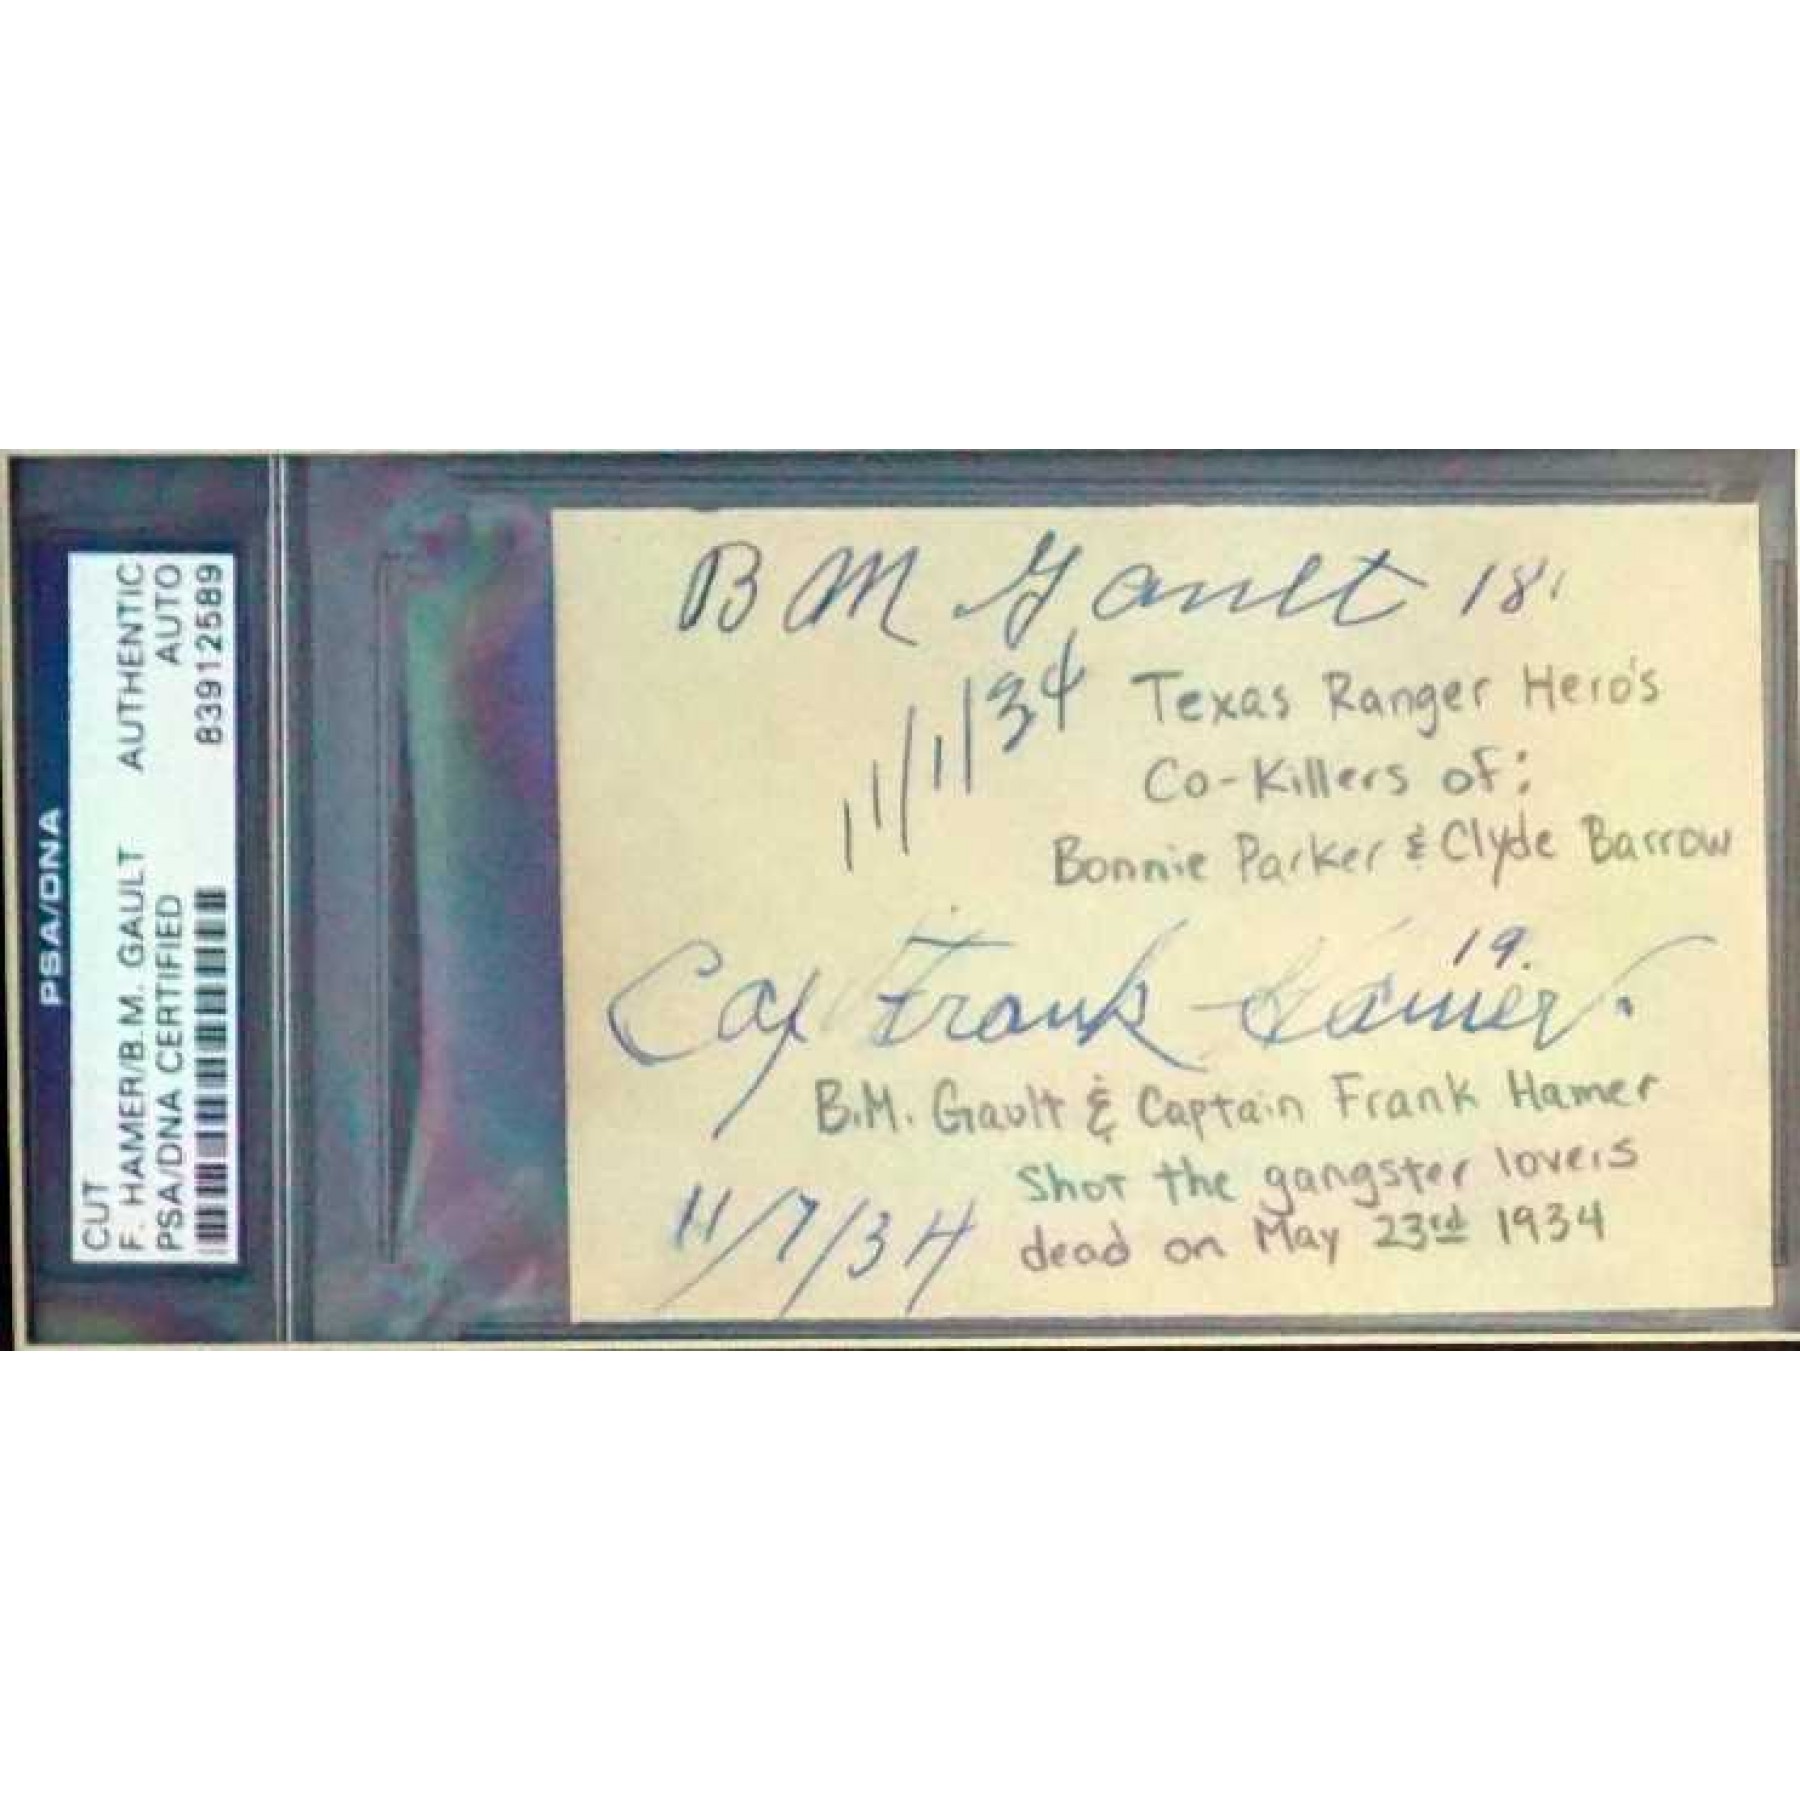 PSA/DNA
CUT
F. HAMER/B.M. GAULT AUTHENTIC
PSA/DNA CERTIFIED AUTO
83912589
B M Gault 18
11/1/34
Texas Ranger Hero's
Co-Killers of:
Bonnie Parker & Clyde Barrow
19.
Cap Frank Hamer.
B.M. Gault & Captain Frank Hamer
Shot the gangster lovers
dead on May 23rd 1934
11/7/34